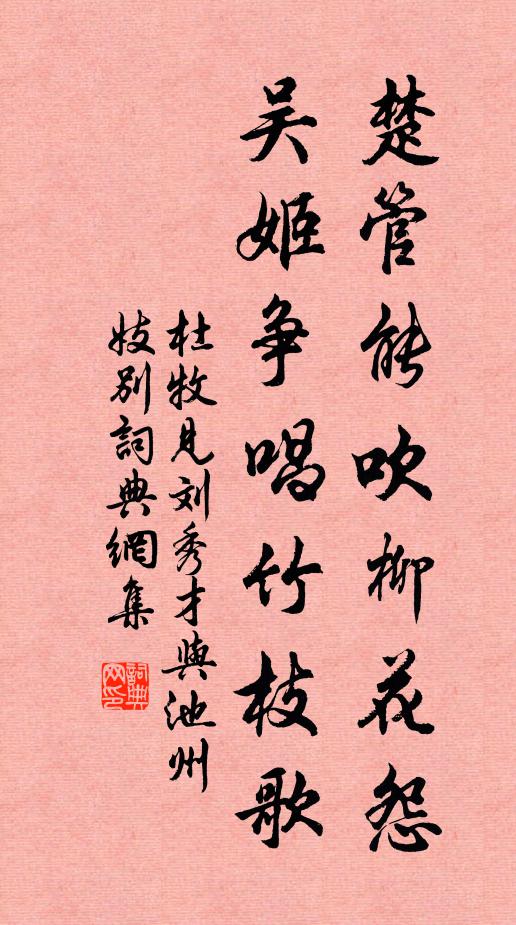 楚管能吹柳花怨
吴姬争唱竹枝歌
杜牧见刘秀才與池州
妓别詞典網集
詞典网印